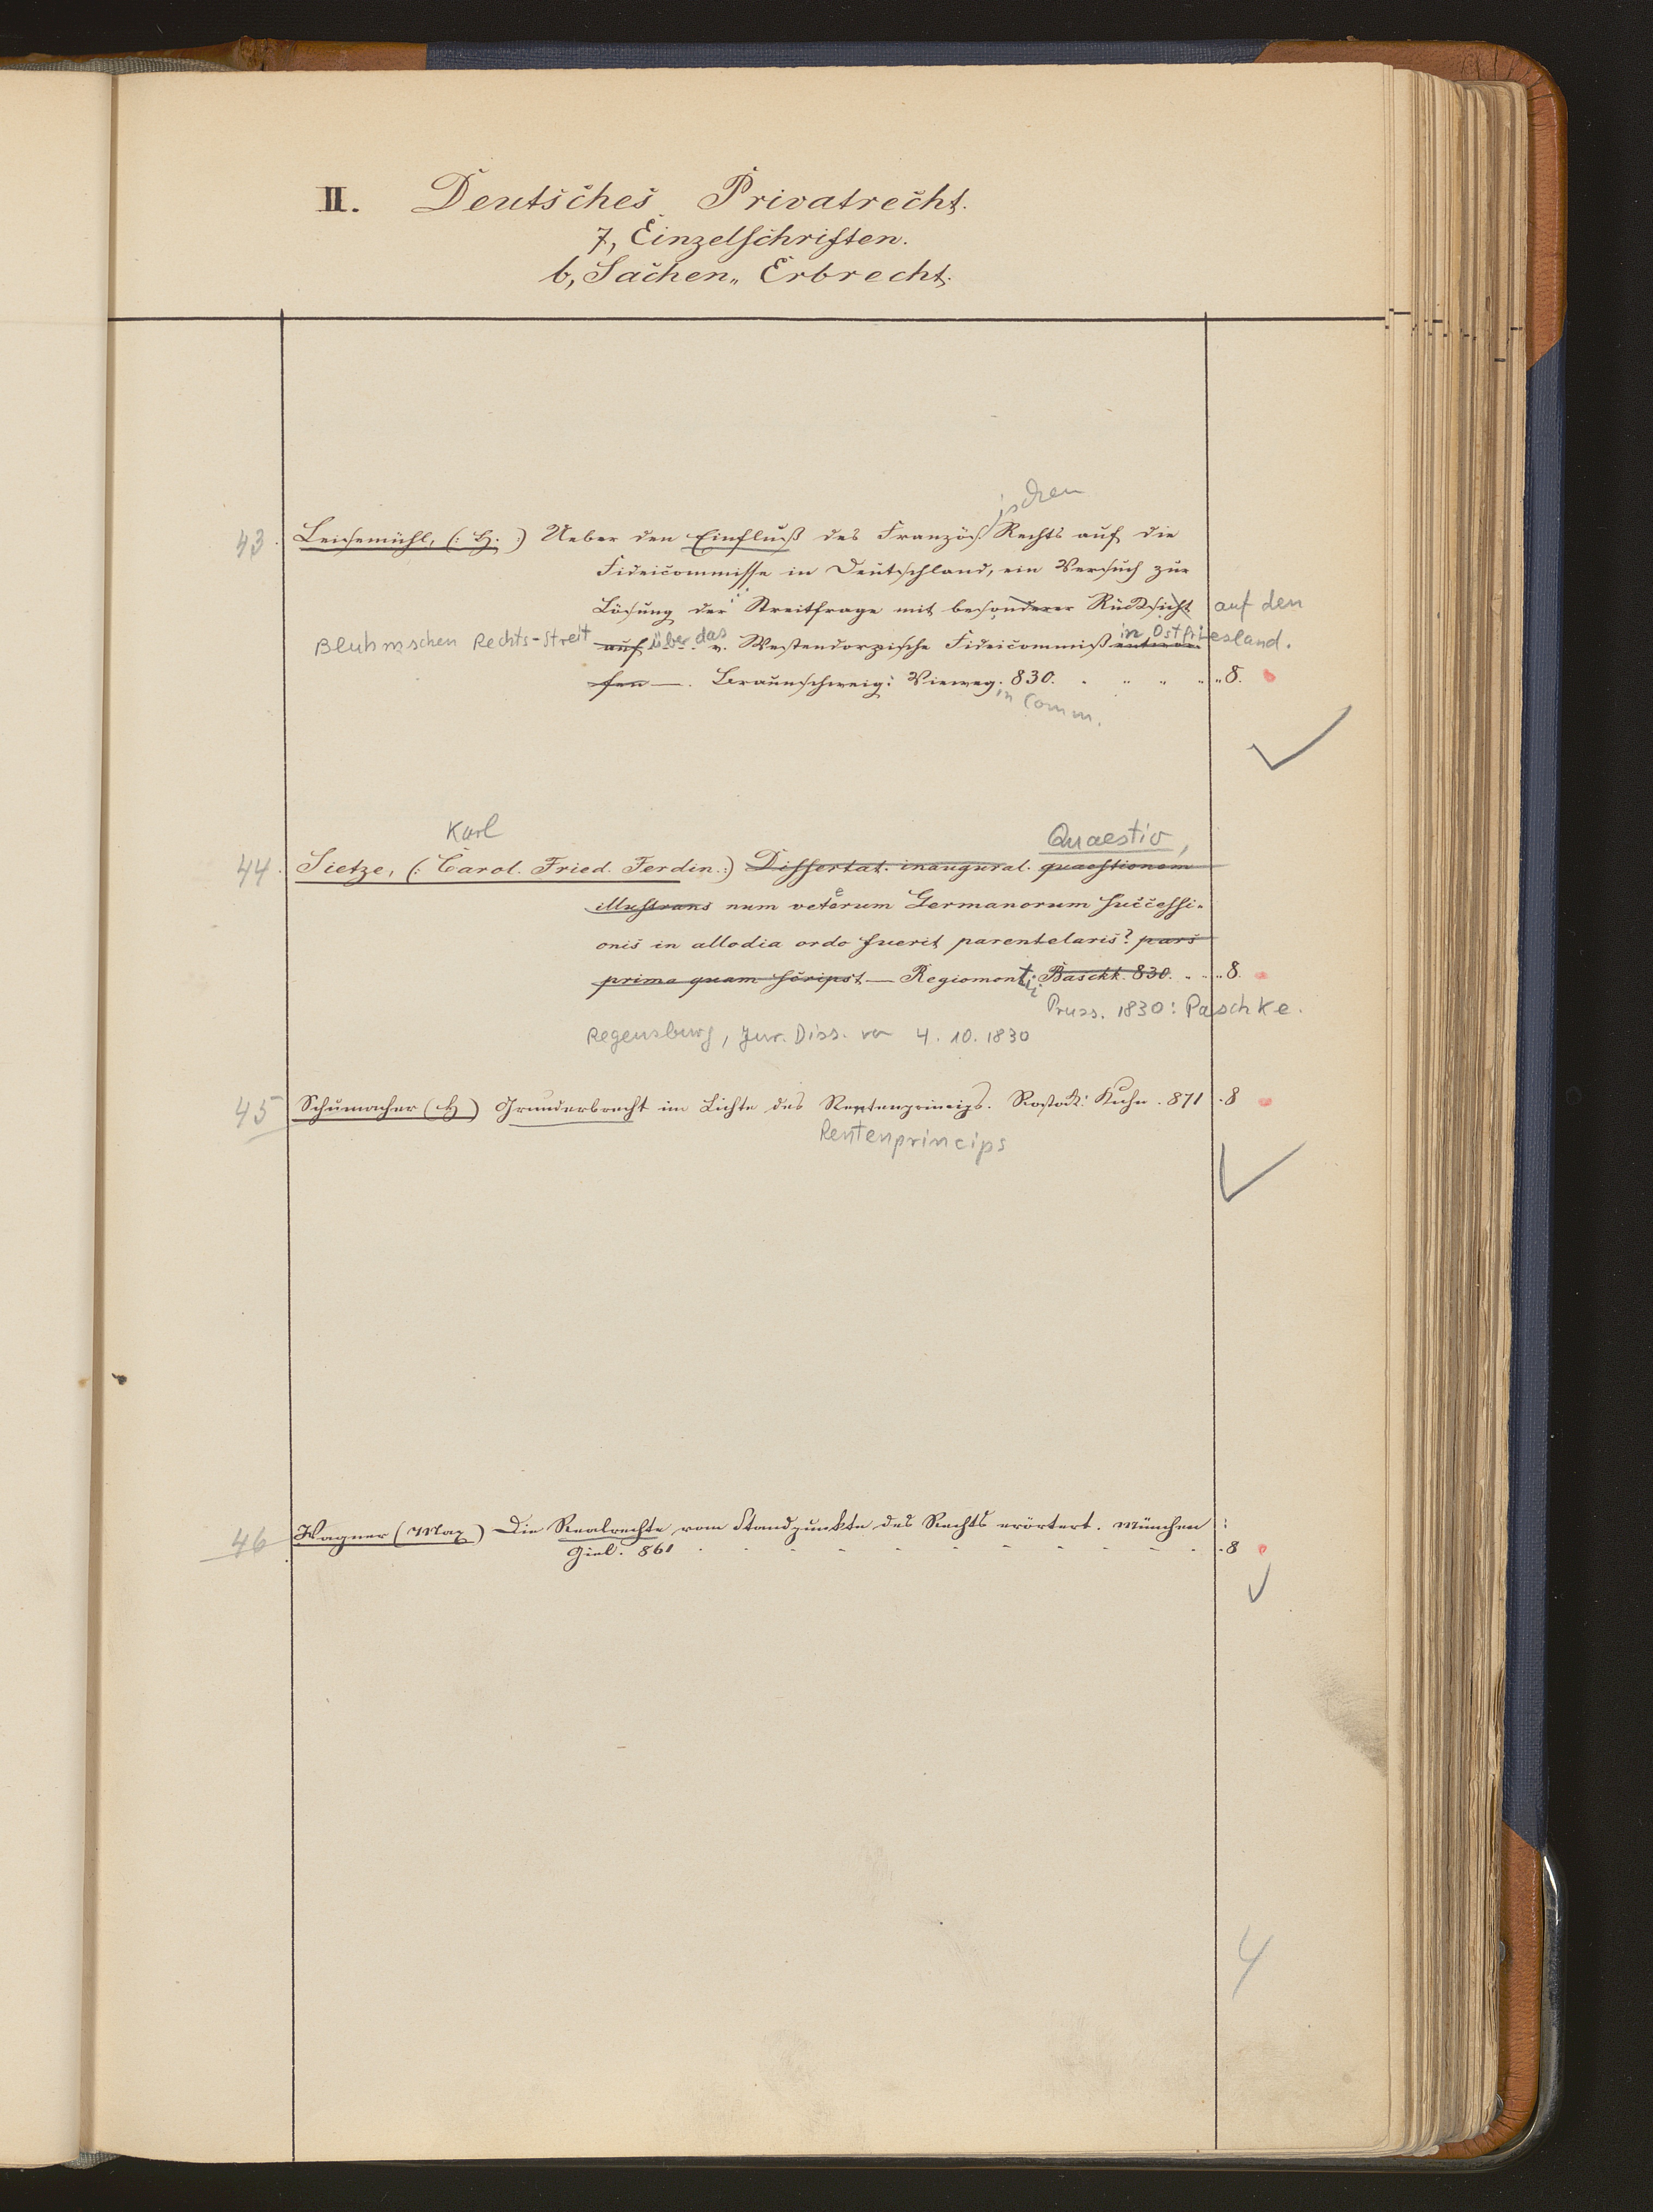 II. Deutsches Privatrecht.
7, Einzelschriften.
b, Sachen„ Erbrecht.
ischen
43. Leisemühl, (: H. :) Ueber den Einfluß des Französ. Rechts auf die
Fideicommisse in Deutschland, ein Versuch zur
Lösung der Streitfrage mit besonderer Rücksicht auf den
Bluhmschen Rechts-Streit auf über das v. Westendorpische Fideicommiß in Ostfriesland.
fen —. Braunschweig: Vieweg. 830. . „ „ „ „ 8.
in Comm.
Karl Quaestio,
44. Sietze, (: Carol. Fried. Ferdin. :) Dissertat. inaugural. quaestionem
illustrans num veterum Germanorum successi-
onis in allodia ordo fuerit parentelaris? pars
prima quam scripsit — Regiomontii Baschk. 830. „ „ „ 8.
Pruss. 1830: Paschke.
Regensburg, Jur. Diss. vom 4. 10. 1830
45 Schumacher (H) Grunderbrecht im Lichte des Rentenprincips. Rostock: Kuhn. 871 . 8
Rentenprincips
46 Wagner (Max) Die Realrechte vom Standpunkte des Rechts erörtert. München :
Giel. 861 . . . . . . . . . . . 8
4